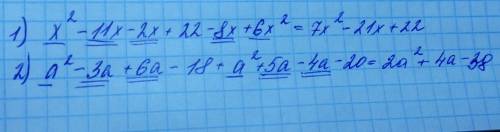 1) x² - 11x - 2x + 22 - 8x + 6x² = 7x² - 21x + 22
2) a² - 3a + 6a - 18 + a² + 5a - 4a - 20 = 2a² + 4a - 38